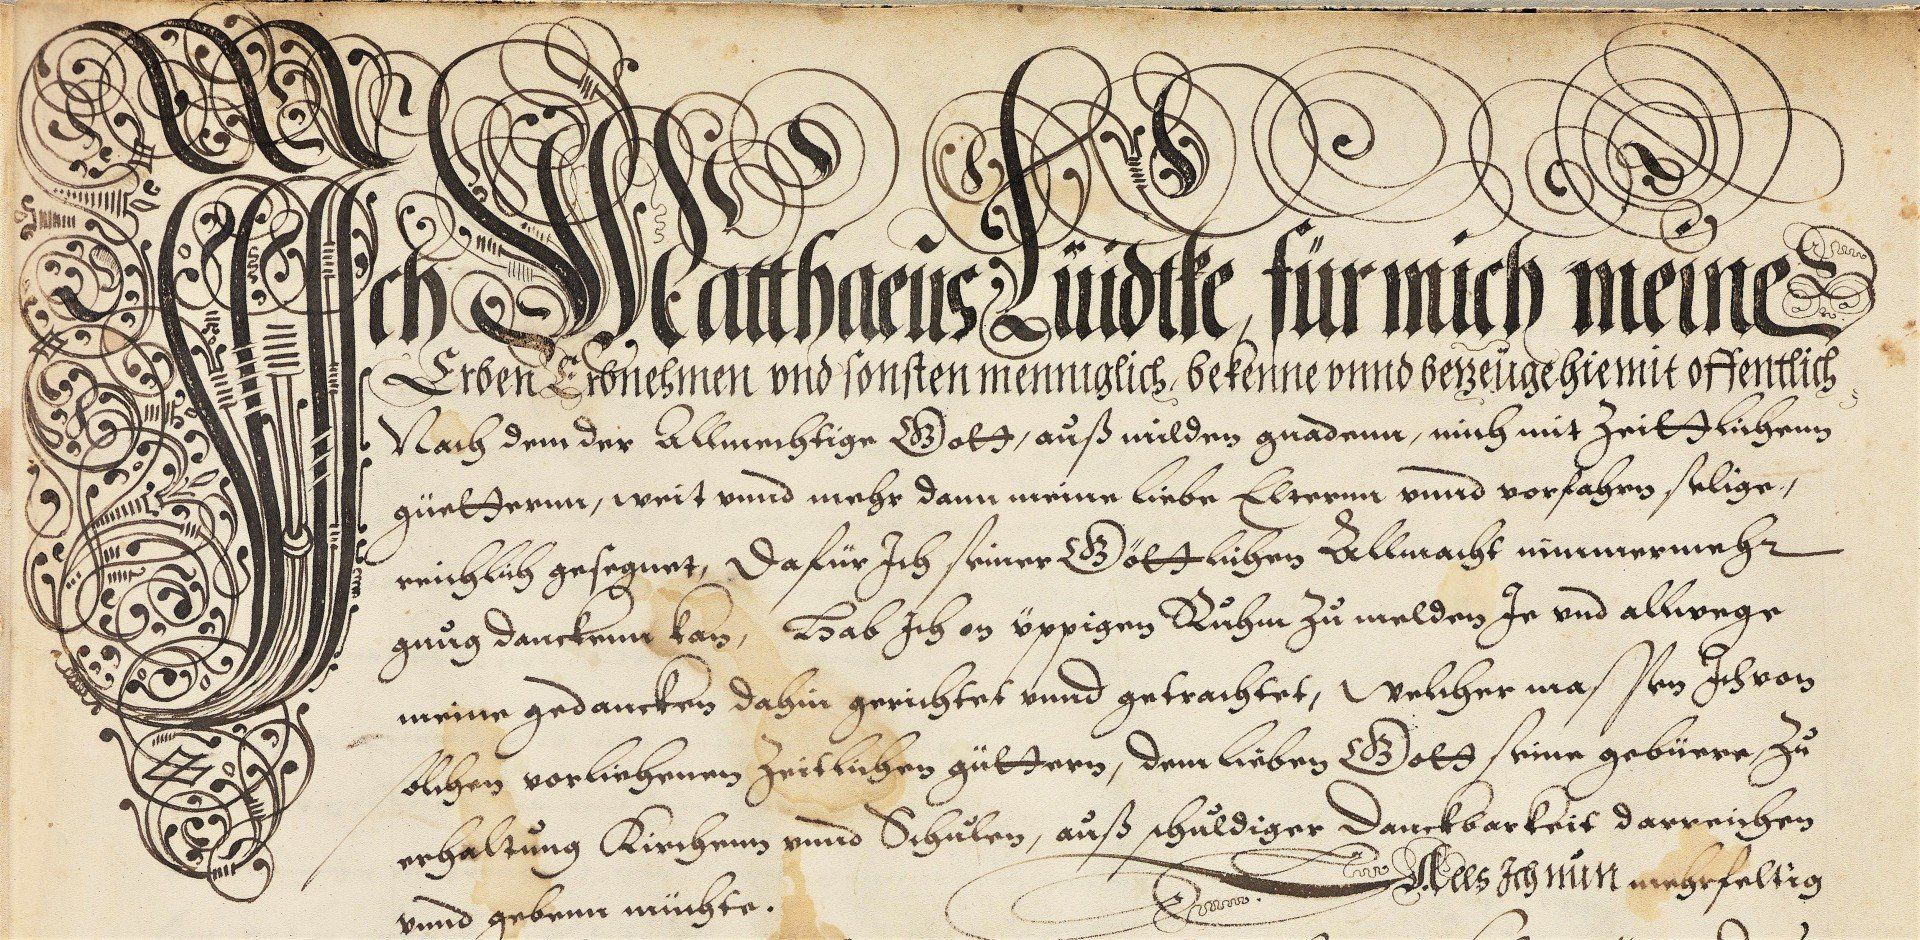 Ich Matthaeus Lüidtke, für mich meine
Erben Erbnehmen vnd sonsten menniglich, bekenne vnnd bezeuge hiemit offentlich
Nach dem der Allmechtige Gott, auß milden gnadenn, mich mit Zeittlichenn
güetternn, weit vnnd mehr dann meine liebe Elternn vnnd vorfahren selige,
reichlich gesegnet, Dafür Ich seiner Göttlichen Allmacht nimmermehr
gnug danckenn kan, Hab Ich on üppigen Ruhm Zu melden Je vnd allwege
meine gedancken dahin gerichtet vnnd getrachtet, Welcher massen Ich von
solchen vorliehenen Zeitlichen güttern, dem lieben Gott seine gebüere, Zu
erhaltung Kirchenn vnnd Schulen, auß schuldiger Danckbarkeit darreichen
vnnd gebenn müchte. Alls Ich nun mehrfeltig